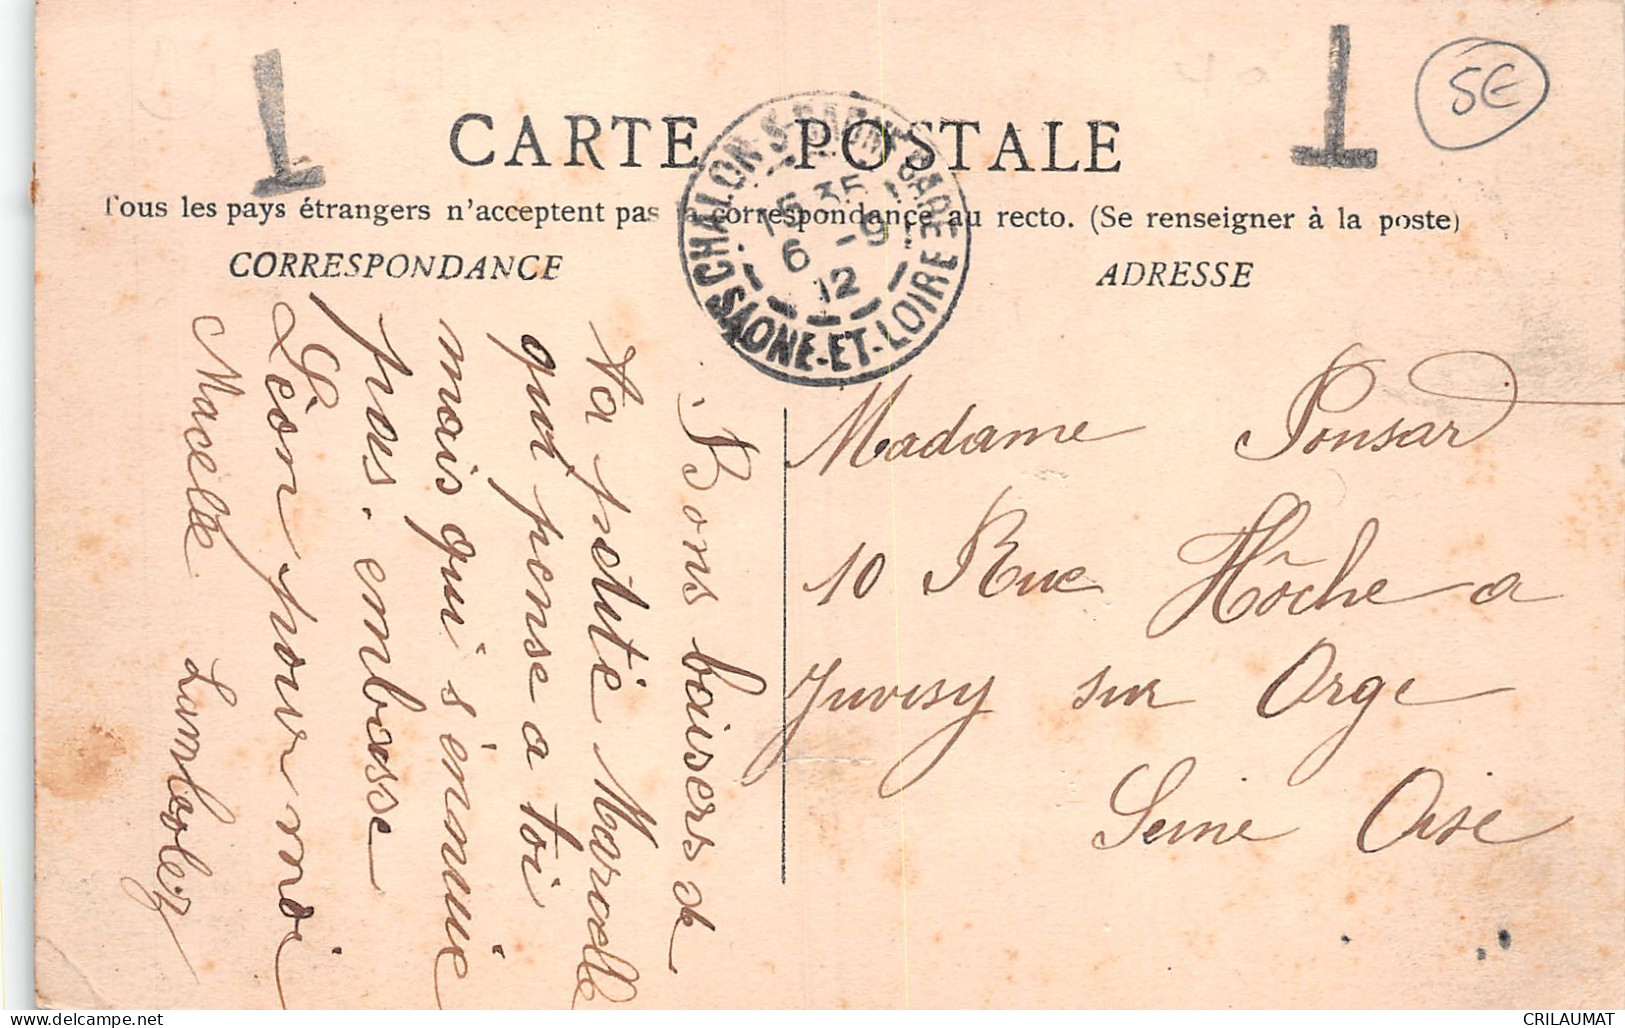 CARTE POSTALE
Tous les pays étrangers n'acceptent pas la correspondance au recto. (Se renseigner à la poste)
CORRESPONDANCE
ADRESSE
CHALON-S-SAONE GARE
15 35
6 -9
12
SAONE-ET-LOIRE
T
T
5€
Bons baisers de
ta petite Marcelle
qui pense a toi
mais qui s'ennuie
pas. embrasse
Léon pour moi
Macelle
Madame Ponsard
10 Rue Hôche a
Juvisy sur Orge
Seine Oise
CRILAUMAT